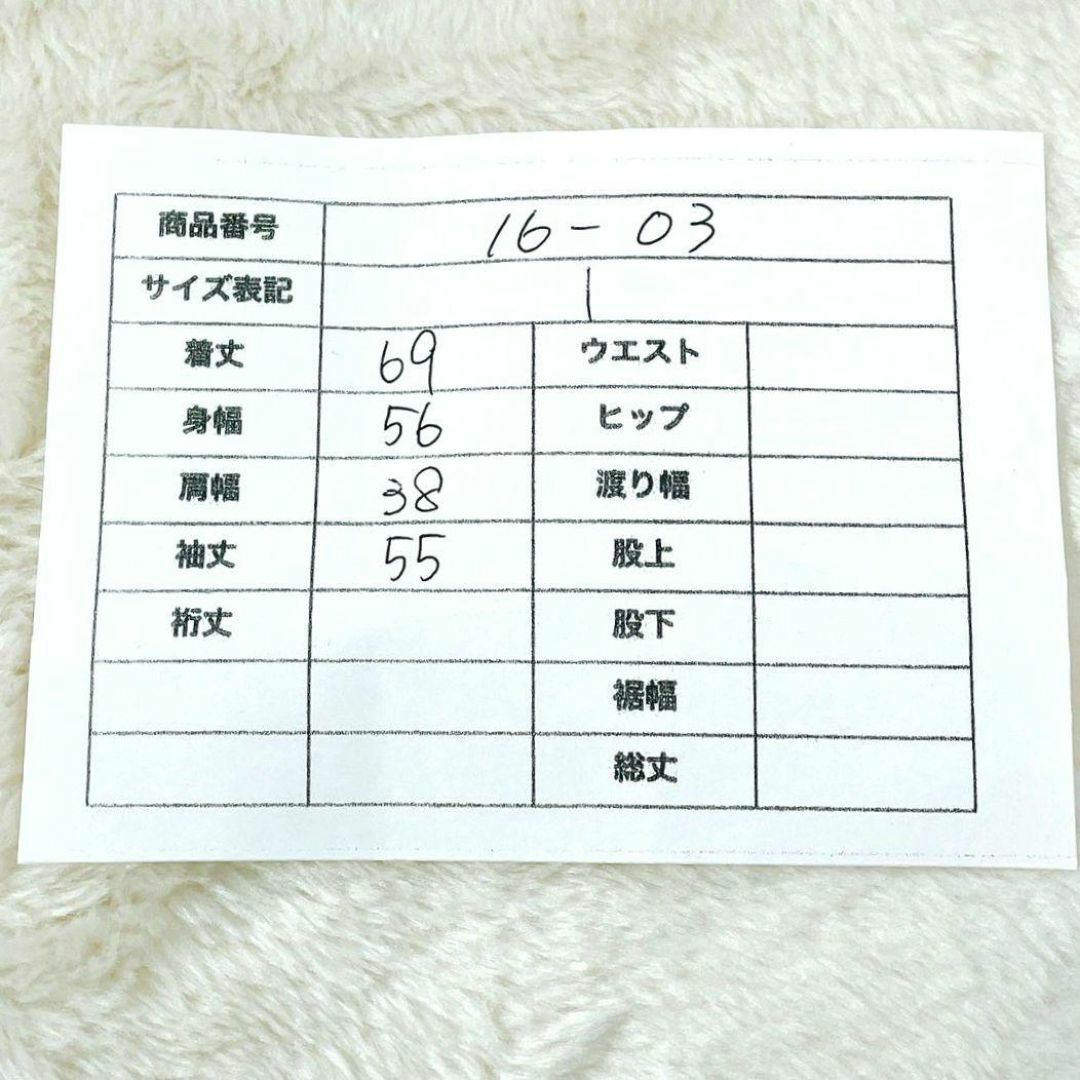 商品番号 16-03
サイズ表記 1
着丈 69 ウエスト
身幅 56 ヒップ
肩幅 38 渡り幅
袖丈 55 股上
裄丈 股下
裾幅
総丈